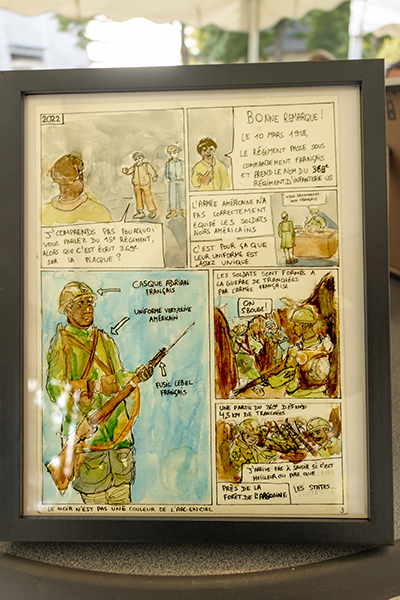 2022
J'COMPRENDS PAS POURQUOI
VOUS PARLEZ DU 15e RÉGIMENT,
ALORS QUE C'EST ÉCRIT 369e
SUR LA PLAQUE ?
BONNE REMARQUE !
LE 10 MARS 1918,
LE RÉGIMENT PASSE SOUS
COMMANDEMENT FRANÇAIS
ET PREND LE NOM DU 369e
RÉGIMENT D'INFANTERIE US
L'ARMÉE AMÉRICAINE N'A
PAS CORRECTEMENT
ÉQUIPÉ LES SOLDATS
NOIRS AMÉRICAINS
C'EST POUR ÇA QUE
LEUR UNIFORME EST
ASSEZ UNIQUE.
VOUS
AUX FRANÇAIS
CASQUE ADRIAN
FRANÇAIS
UNIFORME VERT/OLIVE
AMÉRICAIN
FUSIL LEBEL
FRANÇAIS
LES SOLDATS SONT FORMÉS À
LA GUERRE DE TRANCHÉES
PAR L'ARMÉE FRANÇAISE
ON
S'BOUGE !
UNE PARTIE DU 369e DÉFEND
4,5 KM DE TRANCHÉES
J'ARRIVE PAS À SAVOIR SI C'EST
MEILLEUR OU PIRE QUE
LES STATES...
PRÈS DE LA
FORÊT DE L'ARGONNE
LE NOIR N'EST PAS UNE COULEUR DE L'ARC-EN-CIEL
3